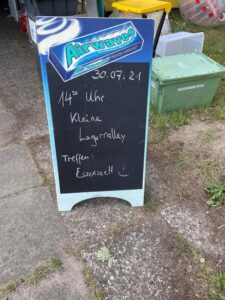 Airwaves
30.07.21
14⁰⁰ Uhr
Kleine
Lagerralley
Treffen:
Essenszelt :)